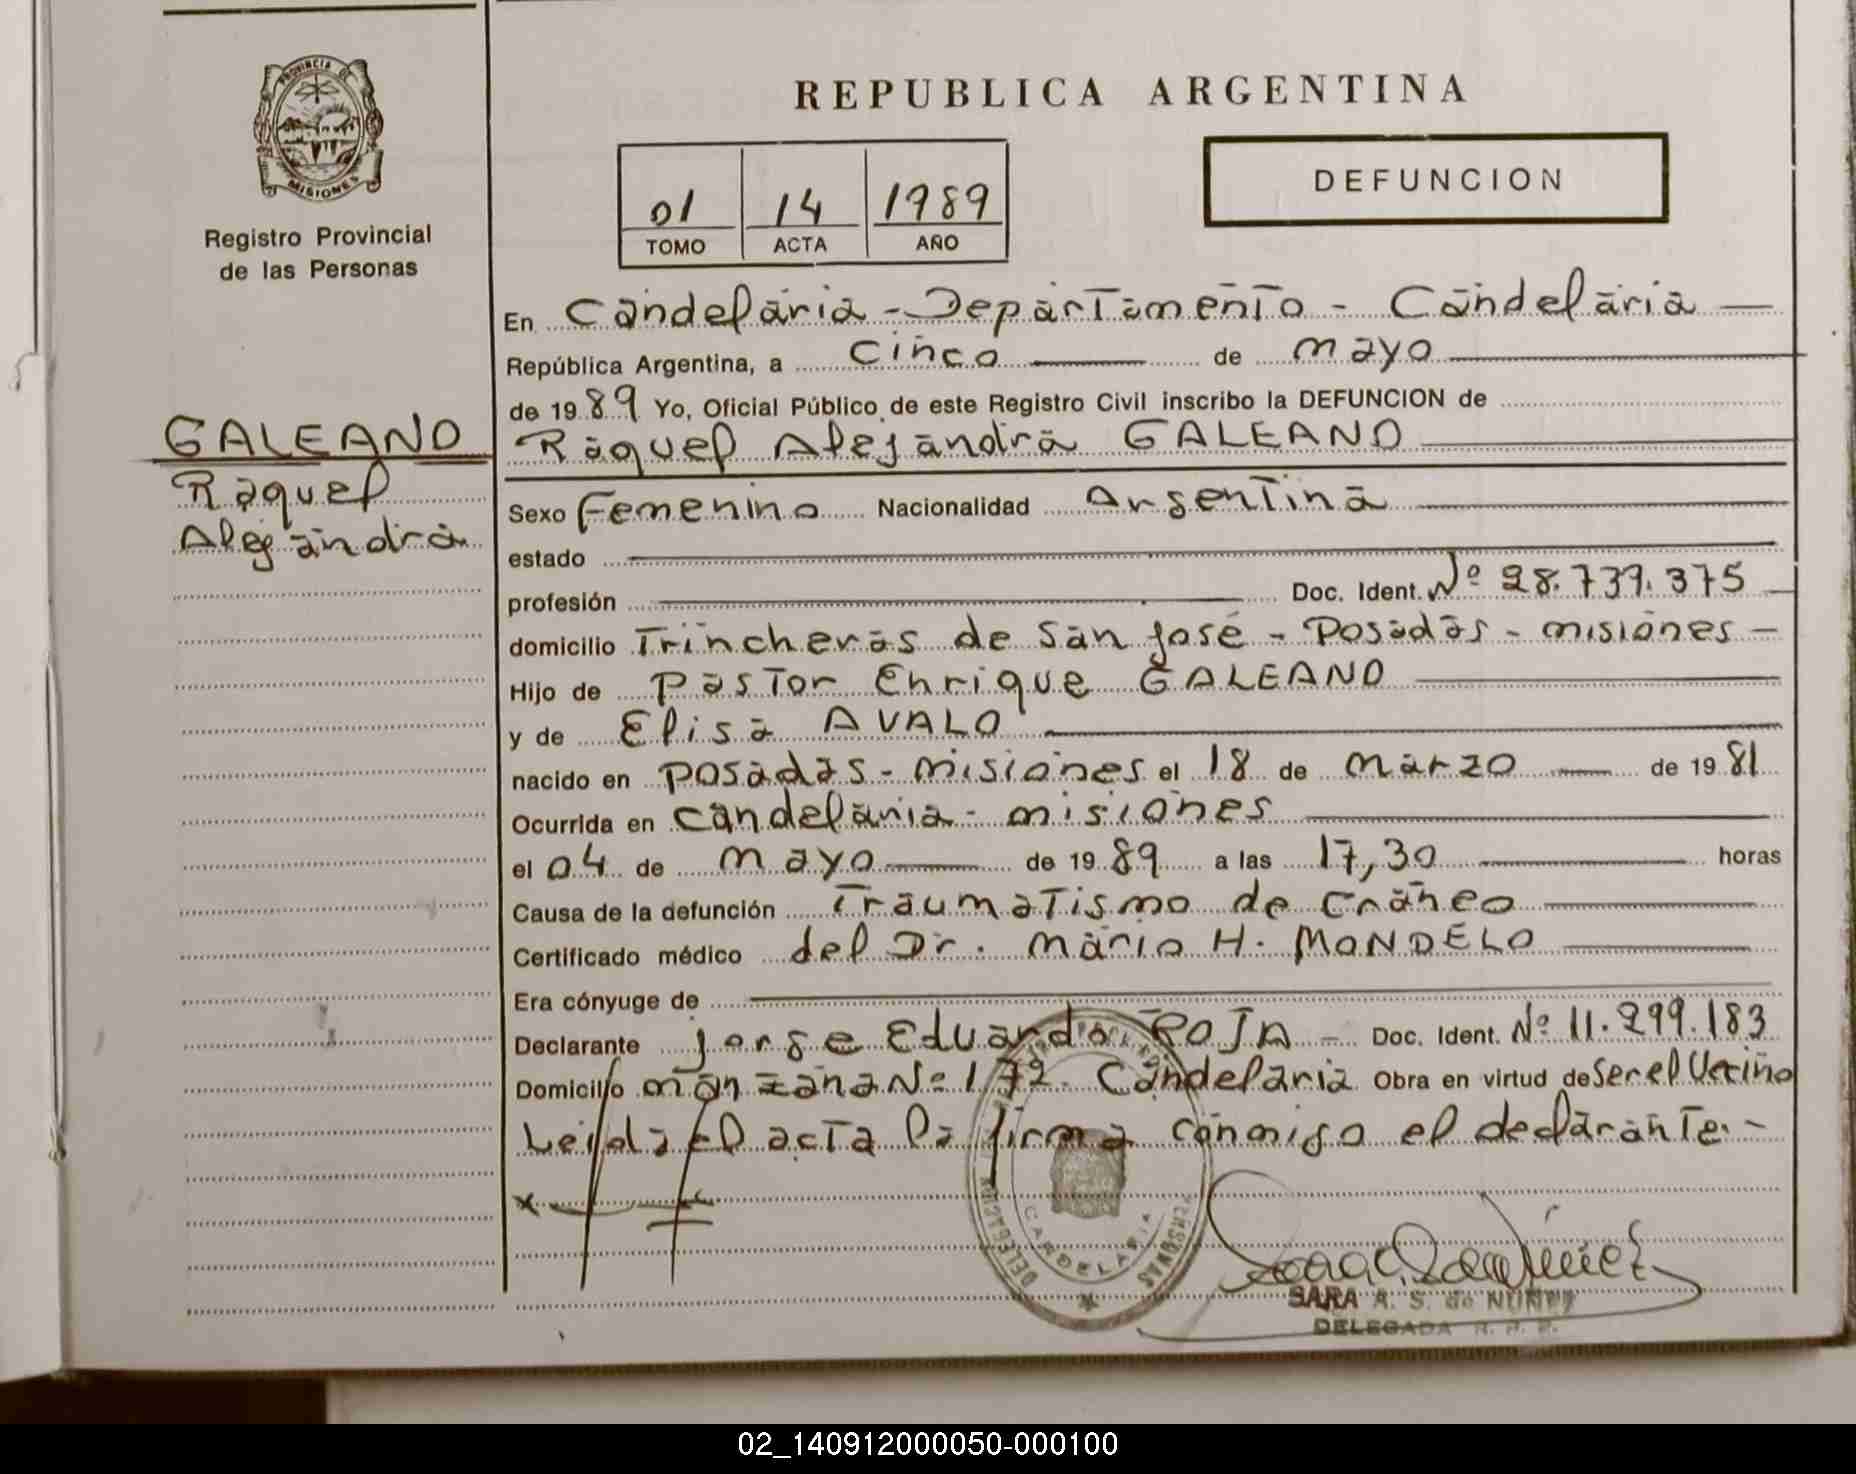 PROVINCIA DE
MISIONES
Registro Provincial
de las Personas
REPUBLICA ARGENTINA
01 14 1989
TOMO ACTA AÑO
DEFUNCION
En Candelaria - Departamento - Candelaria
República Argentina, a cinco de mayo
de 1989 Yo, Oficial Público de este Registro Civil inscribo la DEFUNCION de
Raquel Alejandra GALEANO
GALEANO
Raquel
Alejandra
Sexo Femenino Nacionalidad Argentina
estado
profesión Doc. Ident. Nº 28.739.375
domicilio Trincheras de San José - Posadas - misiones -
Hijo de Pastor Enrique GALEANO
y de Elisa AVALO
nacido en Posadas - misiones el 18 de marzo de 1981
Ocurrida en Candelaria - misiones
el 04 de mayo de 1989 a las 17,30 horas
Causa de la defunción Traumatismo de Cráneo
Certificado médico del Dr. Mario H. MONDELO
Era cónyuge de
Declarante Jorge Eduardo ROJA - Doc. Ident. Nº 11.299.183
Domicilio manzana Nº 172 - Candelaria Obra en virtud de Ser el Vecino
Leida el acta la firma conmigo el declarante.-
DELEGACION PERSONAS
CANDELARIA
SARA A. S. de NUÑEZ
DELEGADA R. P. P.
02_140912000050-000100